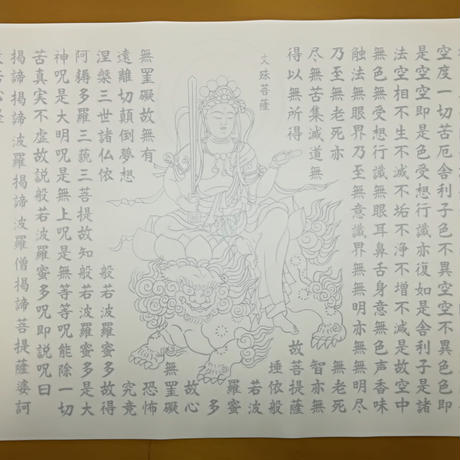 空度一切苦厄舎利子色不異空空不異色色即
是空空即是色受想行識亦復如是舎利子是諸
法空相不生不滅不垢不浄不増不減是故空中
無色無受想行識無眼耳鼻舌身意無色声香味
触法無眼界乃至無意識界無無明亦無無明尽
乃至無老死亦無老死
尽無苦集滅道無智亦無
得以無所得故菩提薩
文殊菩薩
埵依般
若波
羅蜜
多
故心
無罣礙
無罣礙故無有恐怖
遠離切顛倒夢想究竟
涅槃三世諸仏依般若波羅蜜多故得
阿耨多羅三藐三菩提故知般若波羅蜜多是大
神呪是大明呪是無上呪是無等等呪能除一切
苦真実不虚故説般若波羅蜜多呪即説呪曰
揭諦揭諦波羅揭諦波羅僧揭諦菩提薩婆訶